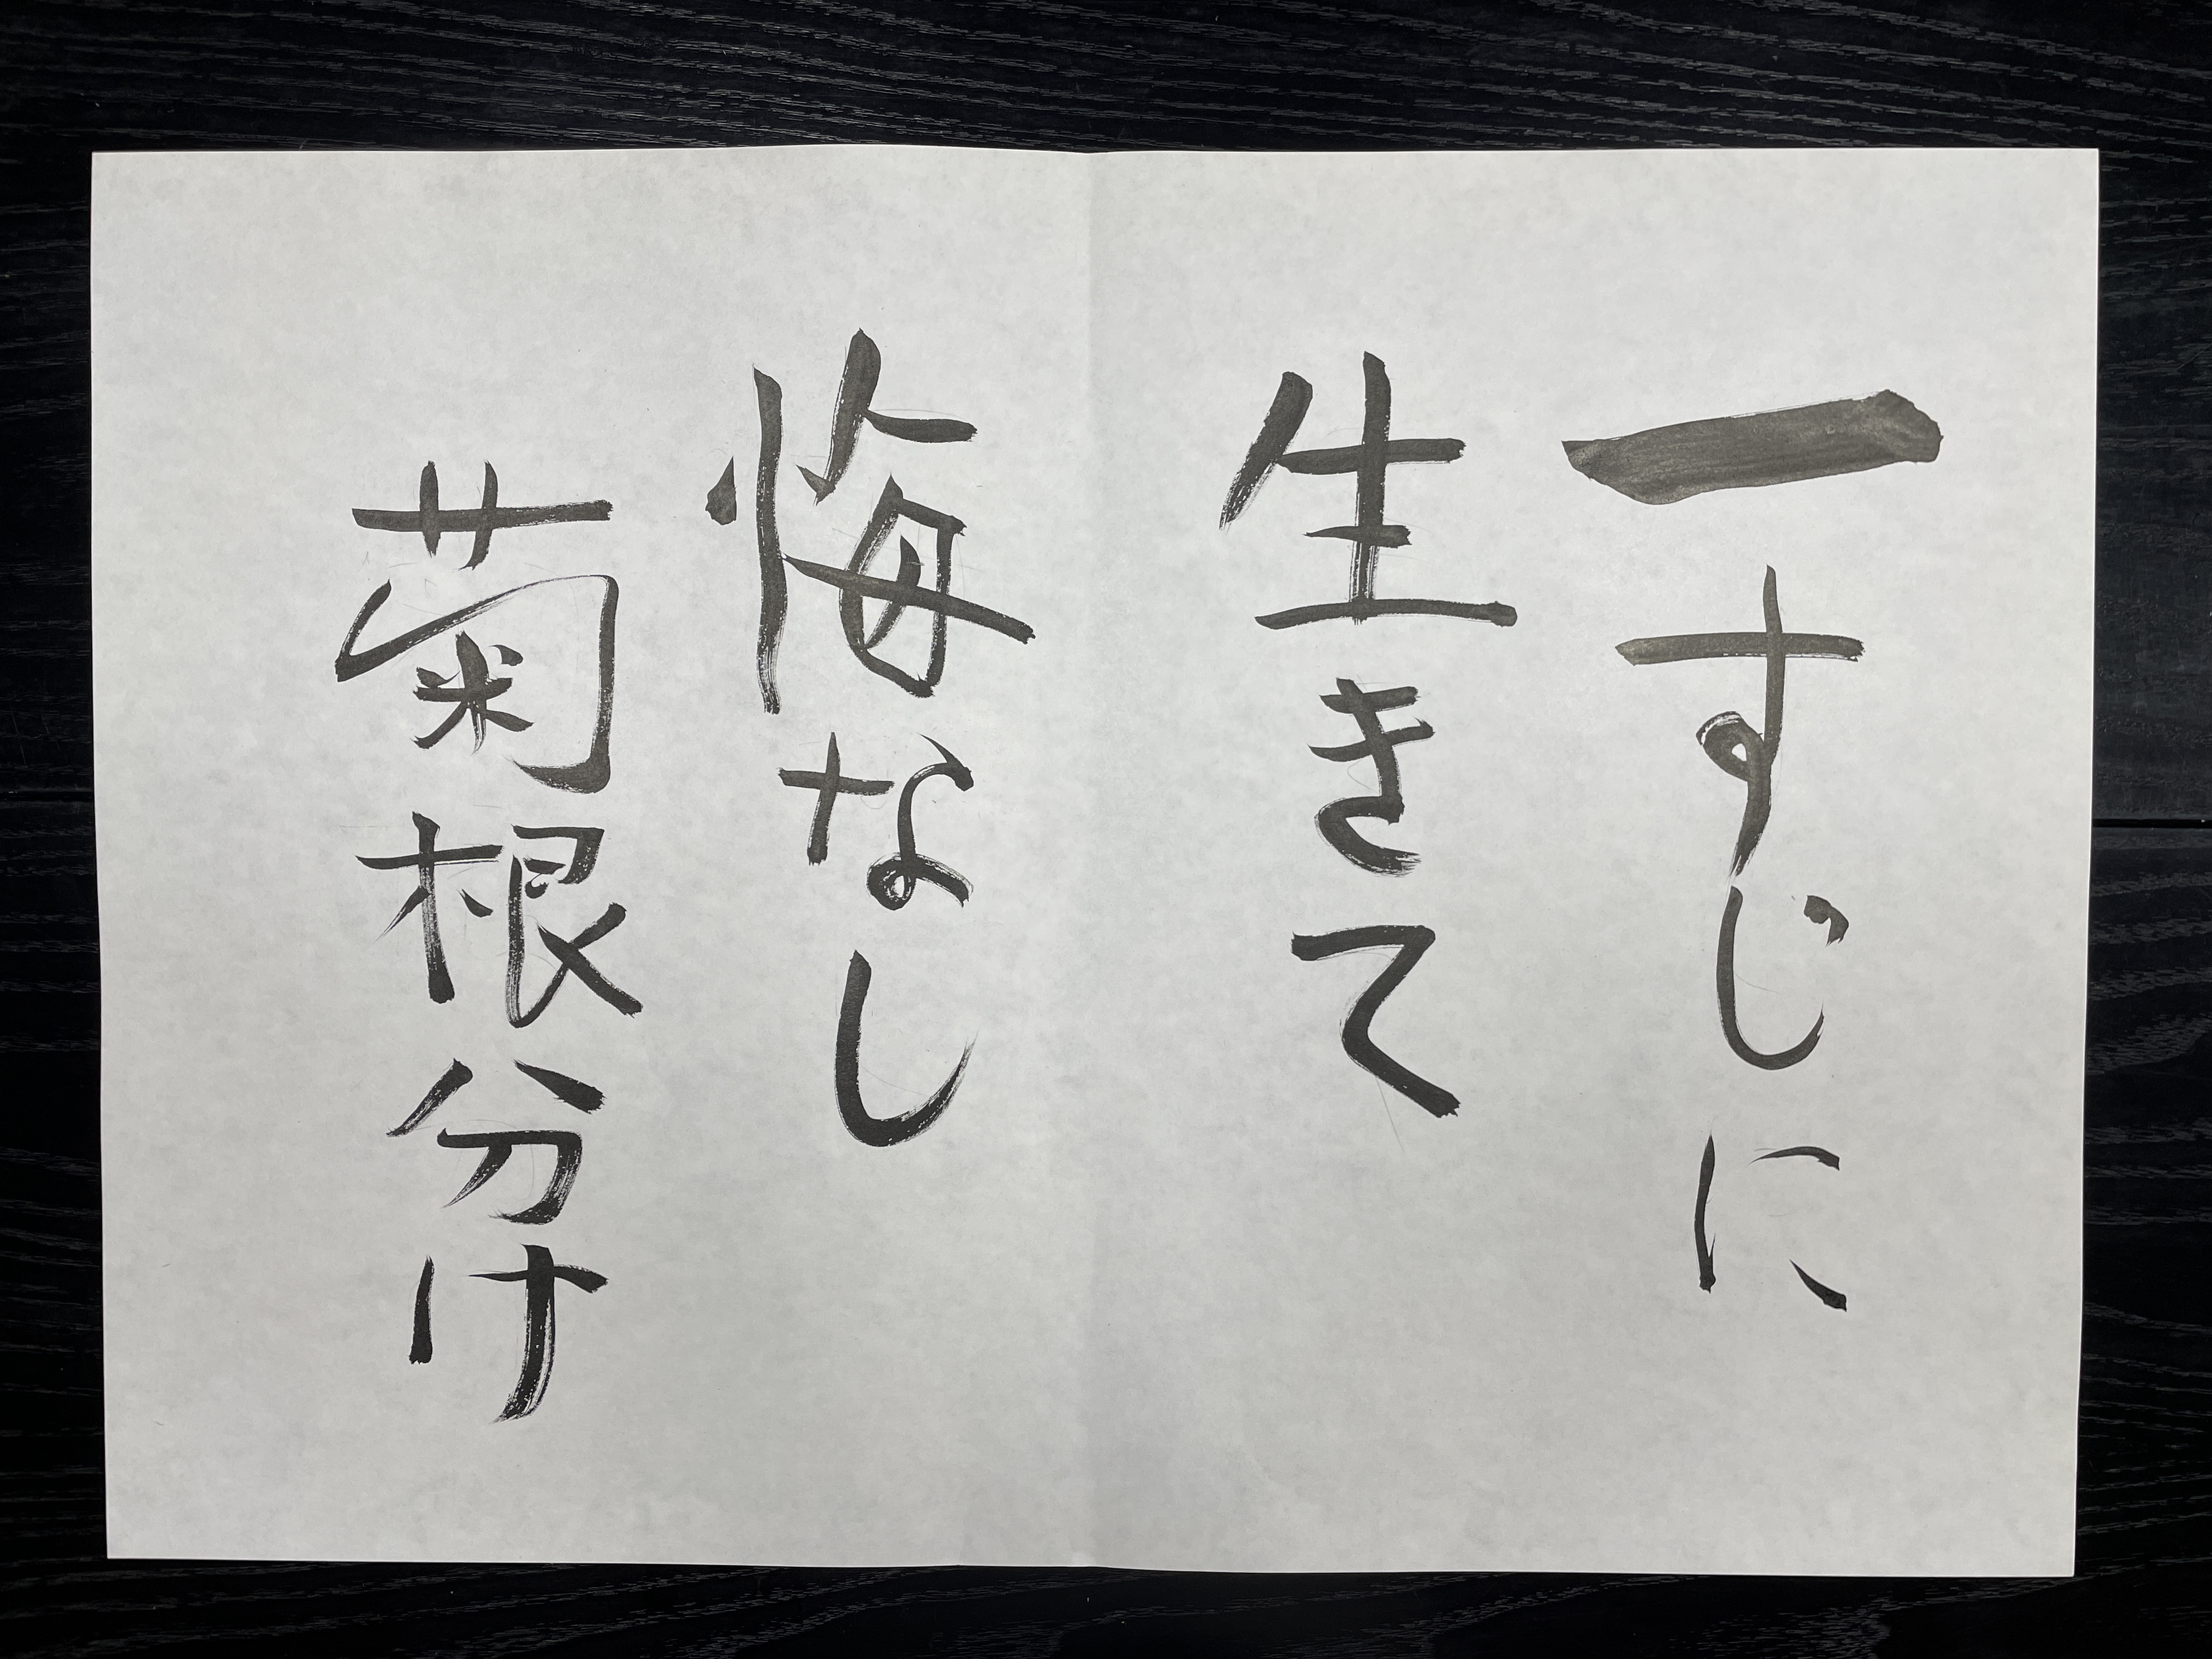 一すじに
生きて
悔なし
菊根分け